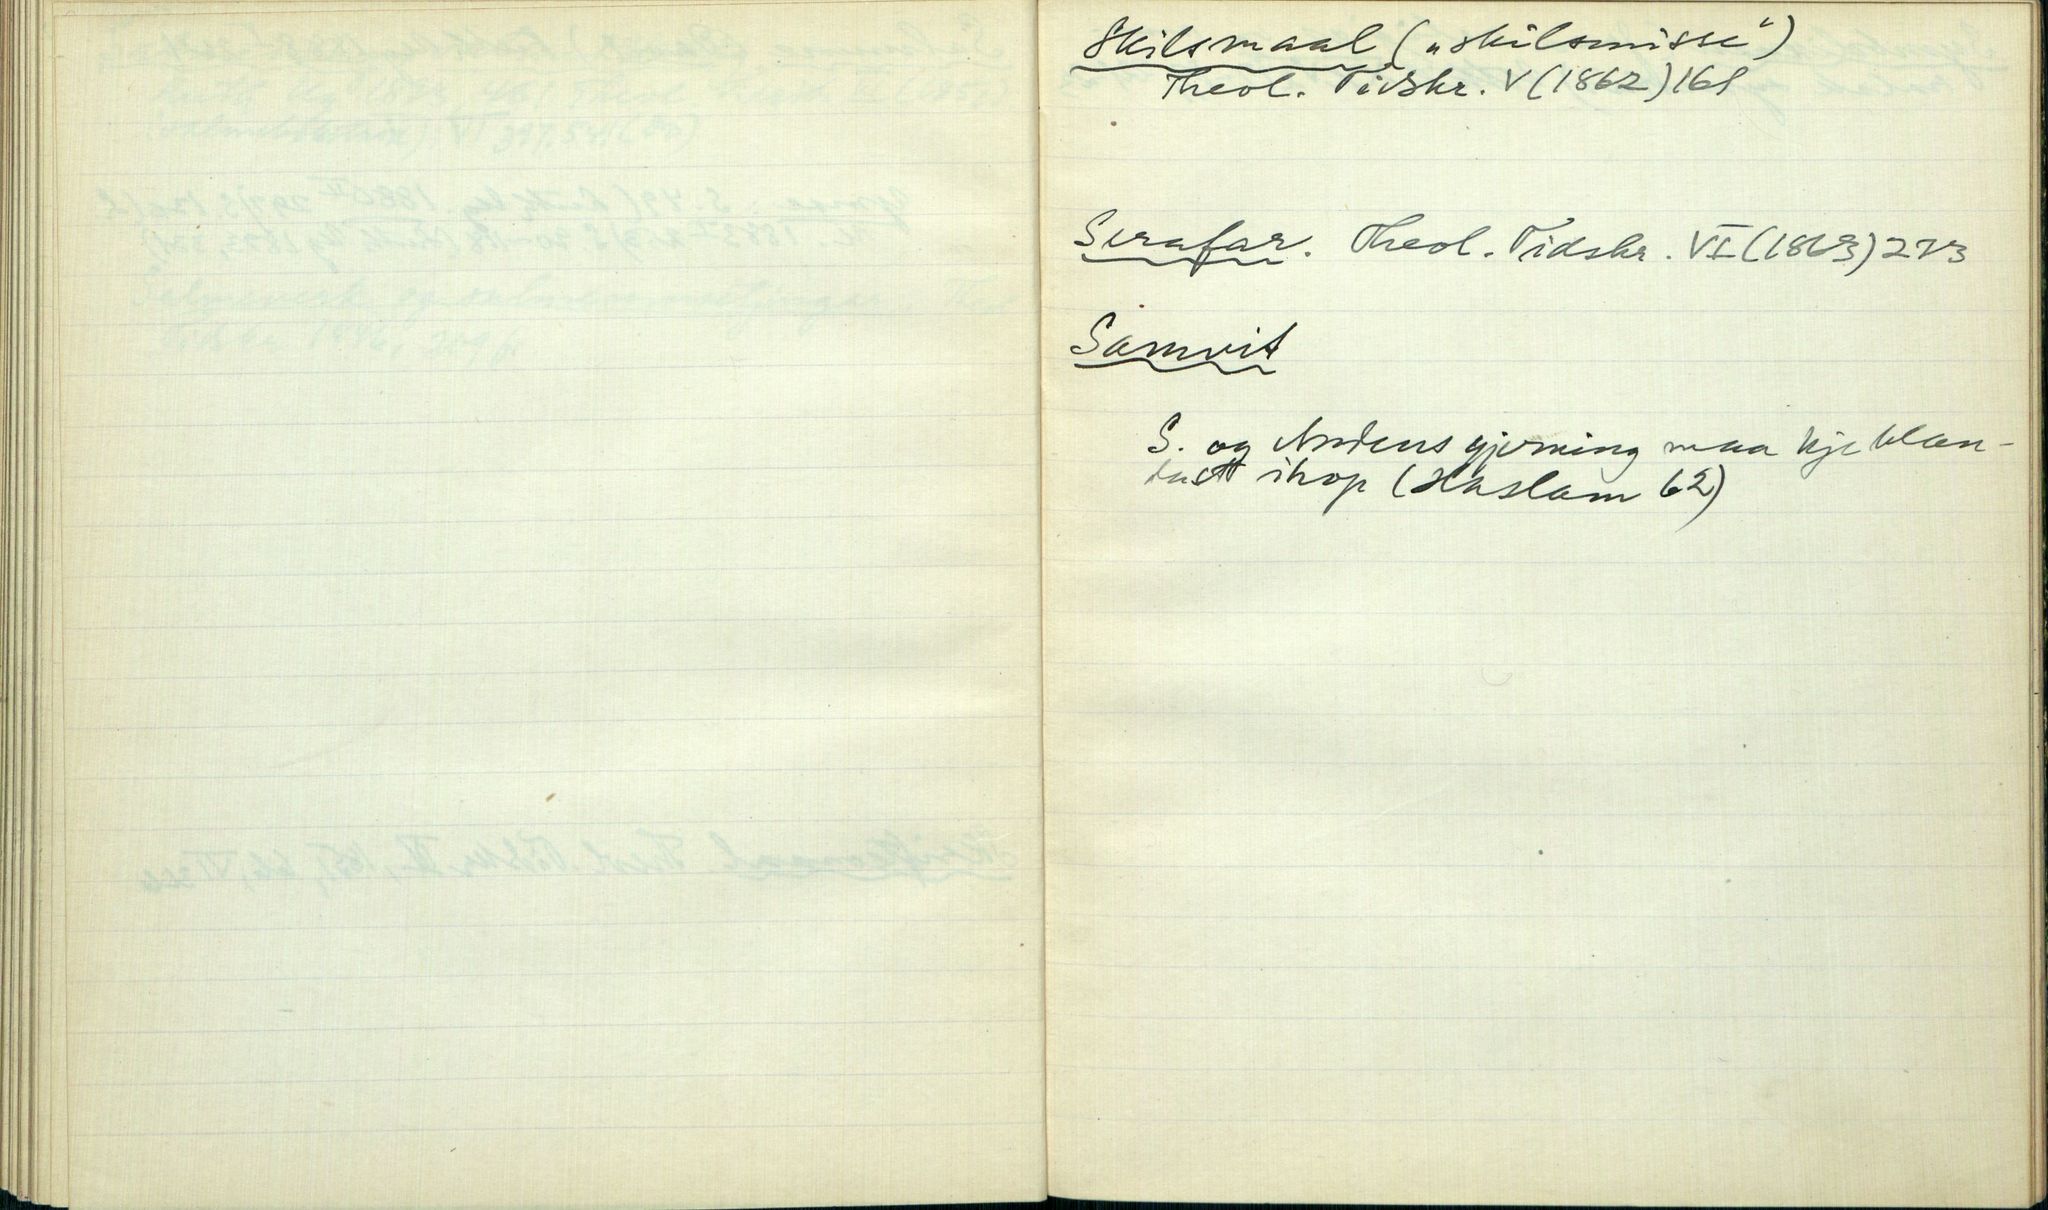 Skilsmaal („skilsmisse“)
Theol. Tidskr. V (1862) 161
Serafar. Theol. Tidskr. VI (1863) 273
Samvit
S. og Andens gjerning maa kje blan-
dast ihop (Haslam 62)